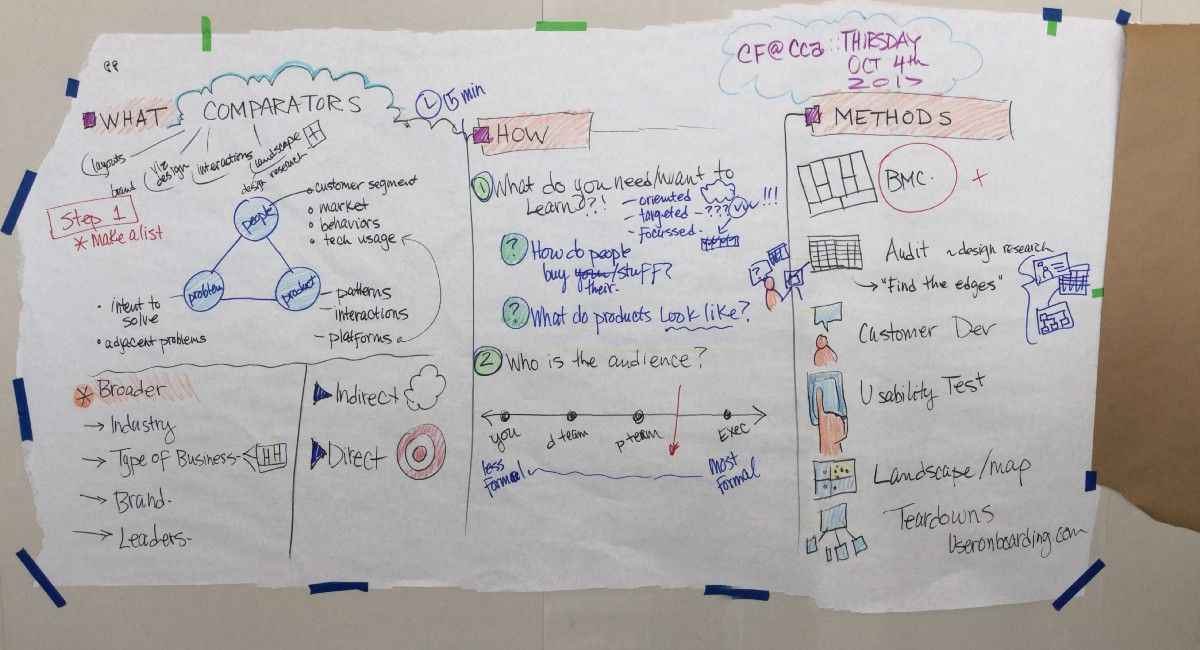 CF@CCA :: THIRSDAY
OCT 4th
2017
WHAT
COMPARATORS
15 min
layouts
brand
viz
design
interactions
landscape
design
research
Step 1
* Make a list
people
problem
product
• customer segment
• market
• behaviors
• tech usage
• intent to
solve
• adjacent problems
– patterns
interactions
– platforms
* Broader
→ Industry
→ Type of Business
→ Brand
→ Leaders
Indirect
Direct
HOW
1 What do you need/want to
Learn??!
– oriented
– targeted
– focussed
???
!!!
? How do people
buy your/stuff?
their
? What do products Look like?
2 Who is the audience?
you
d team
p team
Exec
less
formal
most
formal
METHODS
BMC.
+
Audit ~ design research
→ "Find the edges"
Customer Dev
Usability Test
Landscape/map
Teardowns
Useronboarding.com